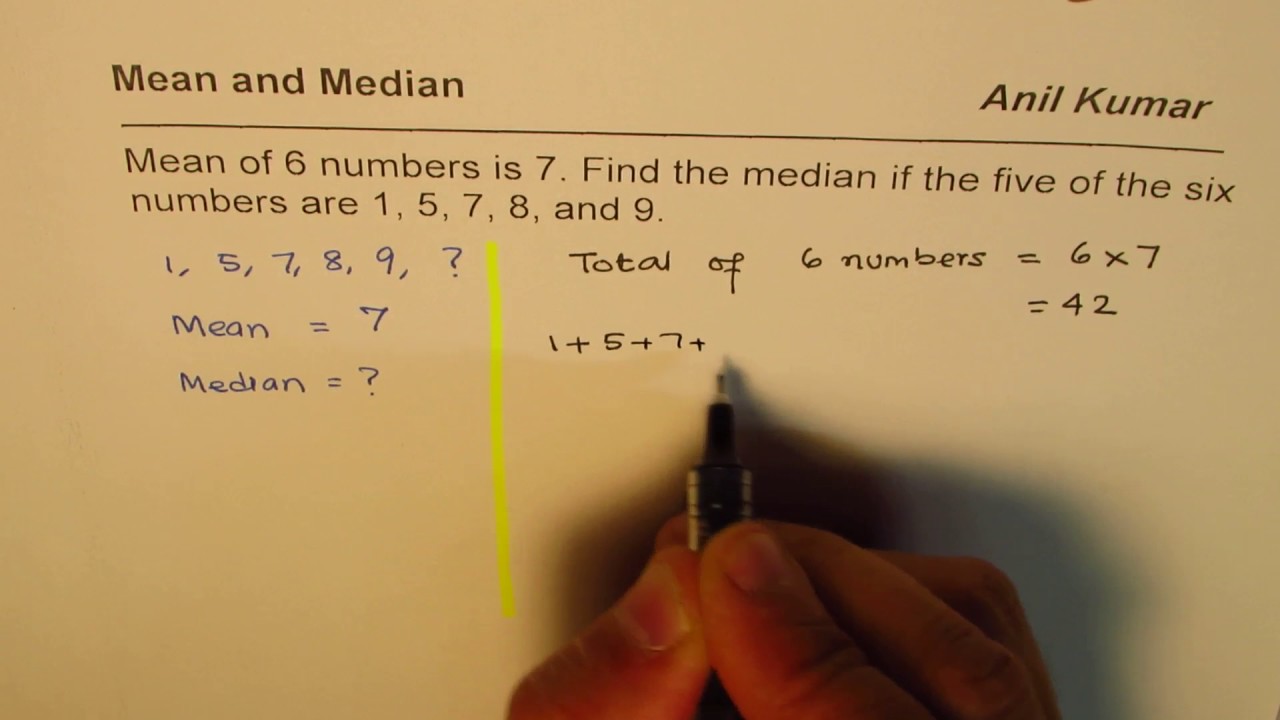 Mean and Median
Anil Kumar
Mean of 6 numbers is 7. Find the median if the five of the six
numbers are 1, 5, 7, 8, and 9.
1, 5, 7, 8, 9, ?
Mean = 7
Median = ?
Total of 6 numbers = 6 × 7
= 42
1 + 5 + 7 +